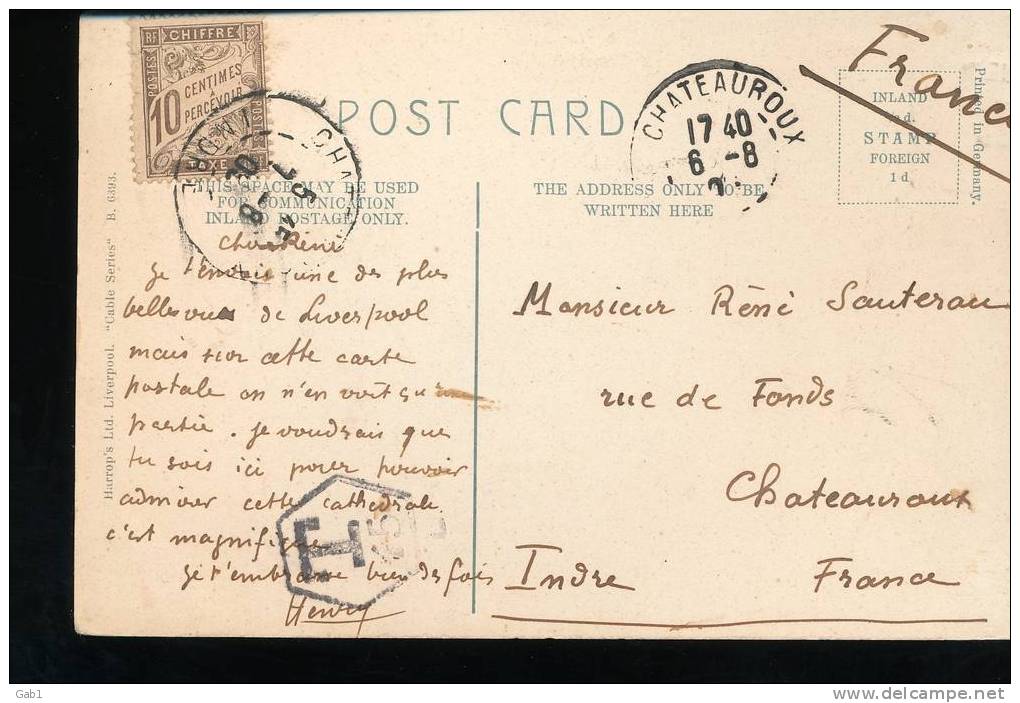 RF CHIFFRE
POSTES
10 CENTIMES
A
PERCEVOIR
TAXE
POST CARD
CHATEAUROUX
17 40
6 -8
France
INLAND
STAMP
FOREIGN
1 d
Printed in Germany.
THIS SPACE MAY BE USED
FOR COMMUNICATION
INLAND POSTAGE ONLY.
THE ADDRESS ONLY TO BE
WRITTEN HERE
Harrop's Ltd. Liverpool. "Cable Series" B. 6393.
Cher Réné
Je t'envoie une des plus
belles de Liverpool
mais sur cette carte
postale on n'en voit qu'une
partie. Je voudrais que
tu sois ici pour pouvoir
admirer cette cathédrale
c'est magnifique
Je t'embrasse bien des fois
Henry
Monsieur Réné Sautereau
rue de Fonds
Chateauroux
Indre France
Gab1
delcampe.net